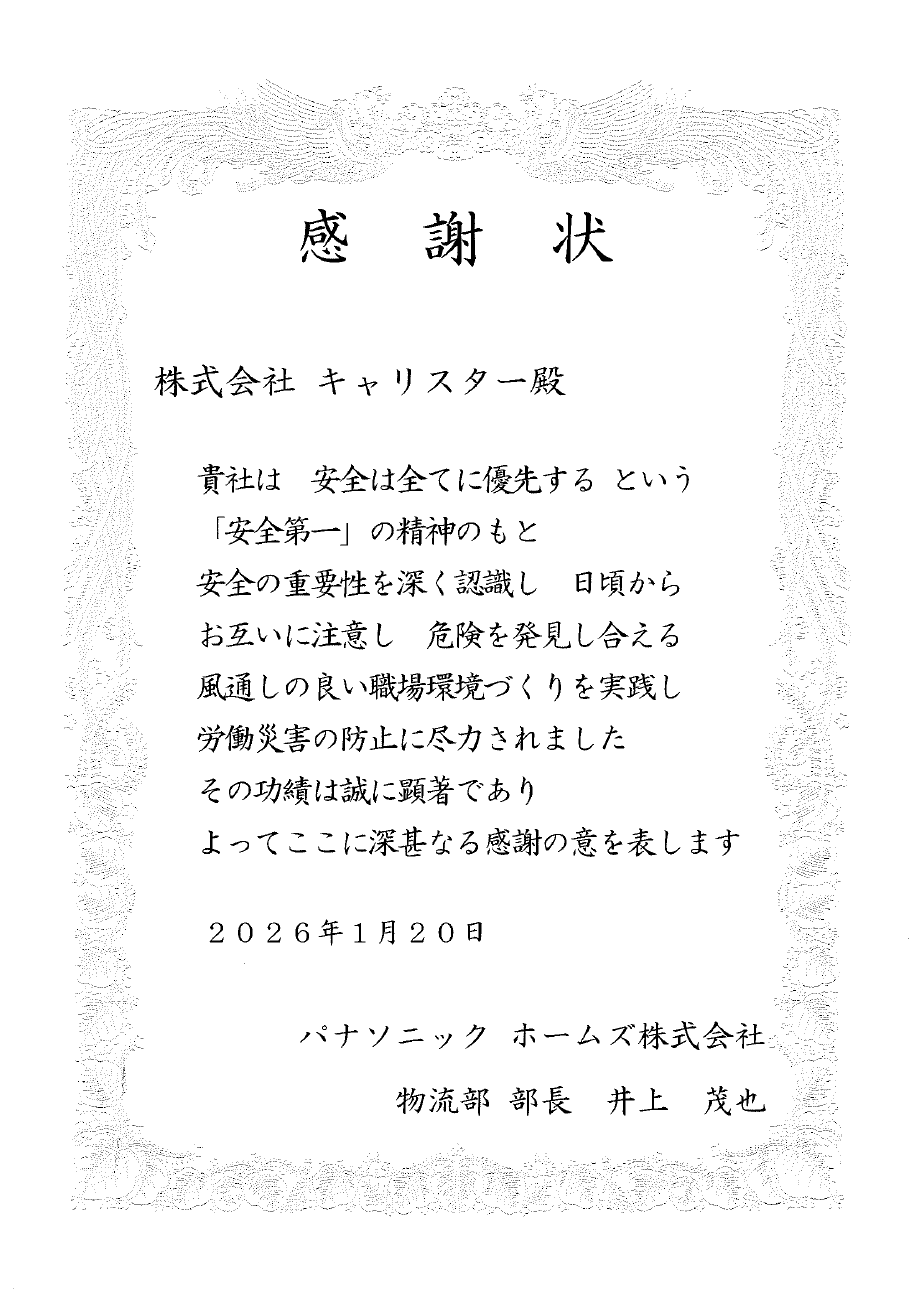 感　謝　状
株式会社 キャリスター殿
貴社は　安全は全てに優先する という
「安全第一」の精神のもと
安全の重要性を深く認識し　日頃から
お互いに注意し　危険を発見し合える
風通しの良い職場環境づくりを実践し
労働災害の防止に尽力されました
その功績は誠に顕著であり
よってここに深甚なる感謝の意を表します
２０２６年１月２０日
パナソニック ホームズ株式会社
物流部 部長　井上　茂也